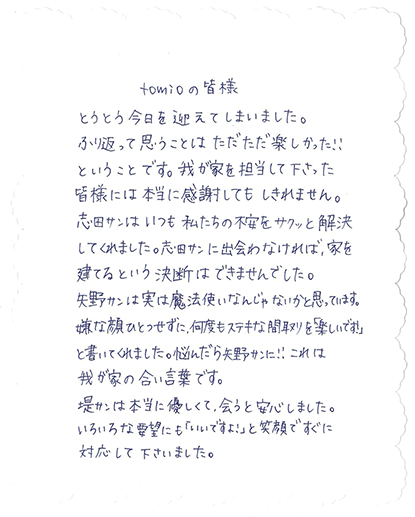 tomioの皆様
とうとう今日を迎えてしまいました。
ふり返って思うことは ただただ楽しかった!!
ということです。我が家を担当して下さった
皆様には本当に感謝しても しきれません。
志田サンは いつも 私たちの不安をサクッと解決
してくれました。志田サンに出会わなければ、家を
建てるという決断は できませんでした。
矢野サンは実は魔法使いなんじゃないかと思っています。
嫌な顔ひとつせずに、何度もステキな間取りを「楽しいです!」
と書いてくれました。悩んだら矢野サンに!! これは
我が家の合い言葉です。
堤サンは本当に優しくて、会うと安心しました。
いろいろな要望にも「いいですよ!」と笑顔ですぐに
対応して下さいました。